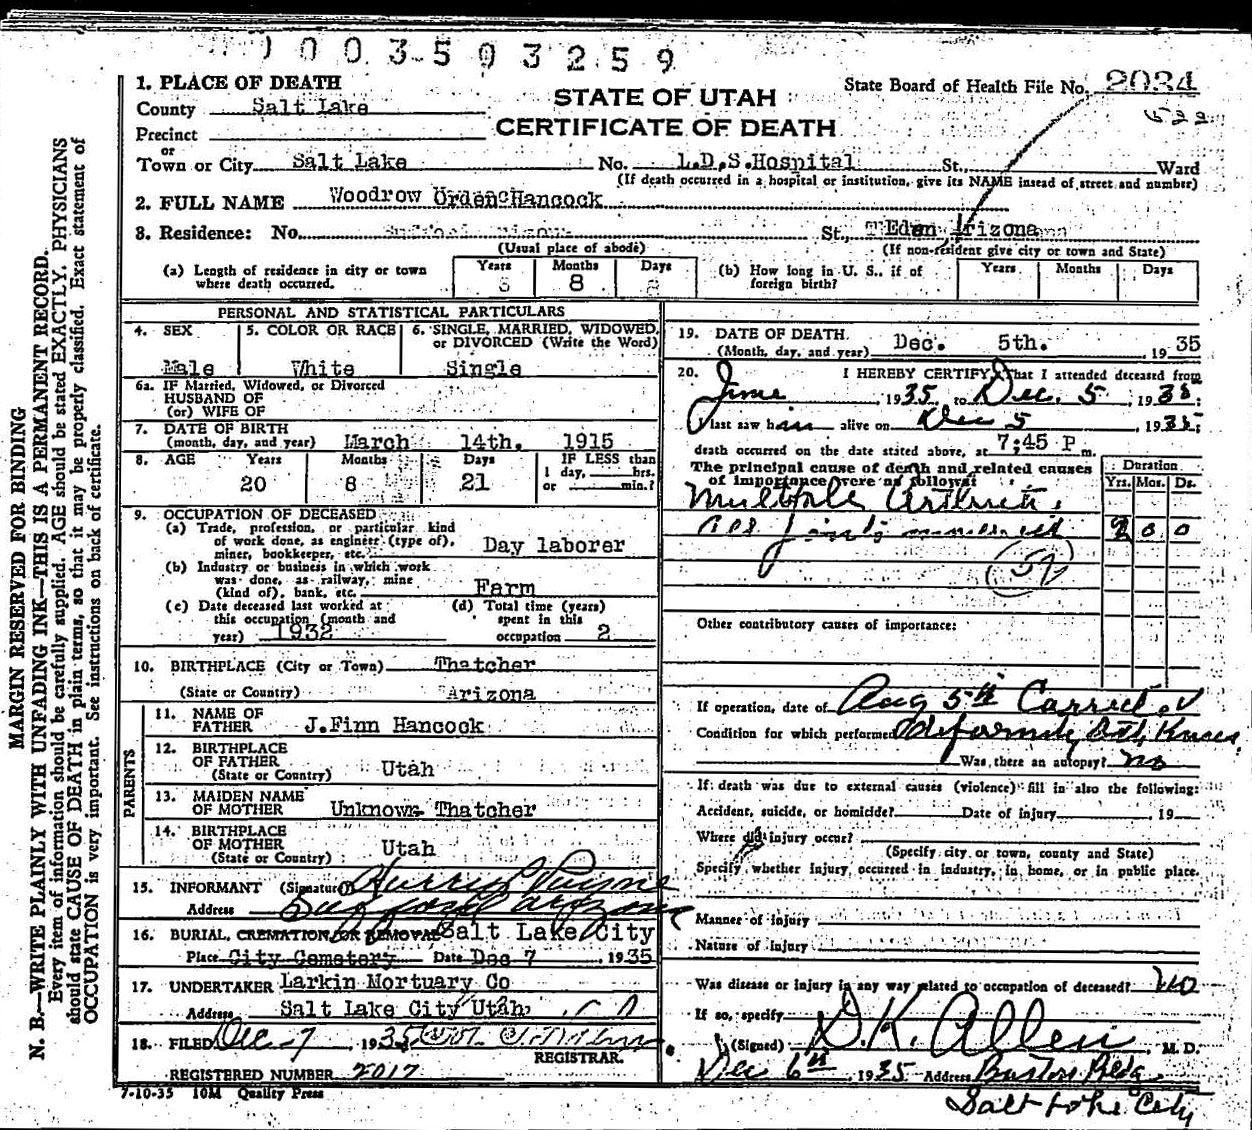 0003503259
1. PLACE OF DEATH
County Salt Lake
Precinct
or
Town or City Salt Lake No. L.D.S.Hospital St., Ward
(If death occurred in a hospital or institution, give its NAME instead of street and number)
STATE OF UTAH
CERTIFICATE OF DEATH
State Board of Health File No. 2034
522
2. FULL NAME Woodrow Orden Hancock
3. Residence: No. St., Eden Arizona
(Usual place of abode) (If non-resident give city or town and State)
(a) Length of residence in city or town where death occurred. Years Months 8 Days
(b) How long in U. S., if of foreign birth? Years Months Days
PERSONAL AND STATISTICAL PARTICULARS
4. SEX Male
5. COLOR OR RACE White
6. SINGLE, MARRIED, WIDOWED, or DIVORCED (Write the Word) Single
6a. IF Married, Widowed, or Divorced
HUSBAND OF
(or) WIFE OF
7. DATE OF BIRTH
(month, day, and year) March 14th. 1915
8. AGE Years 20 Months 8 Days 21 IF LESS than 1 day, hrs. or min.?
9. OCCUPATION OF DECEASED
(a) Trade, profession, or particular kind of work done, as engineer (type of), miner, bookkeeper, etc. Day laborer
(b) Industry or business in which work was done, as railway, mine (kind of), bank, etc. Farm
(c) Date deceased last worked at this occupation (month and year) 1932
(d) Total time (years) spent in this occupation 2
10. BIRTHPLACE (City or Town) Thatcher
(State or Country) Arizona
PARENTS
11. NAME OF FATHER J.Finn Hancock
12. BIRTHPLACE OF FATHER (State or Country) Utah
13. MAIDEN NAME OF MOTHER Unknown Thatcher
14. BIRTHPLACE OF MOTHER (State or Country) Utah
15. INFORMANT (Signature) Harry Payne
Address
16. BURIAL, CREMATION, OR REMOVAL Salt Lake City
Place City Cemetery Date Dec 7, 1935
17. UNDERTAKER Larkin Mortuary Co
Address Salt Lake City Utah
18. FILED Dec 7, 1935
REGISTRAR.
REGISTERED NUMBER 2017
7-10-35 10M Quality Press
19. DATE OF DEATH
(Month, day, and year) Dec. 5th. , 19 35
20. I HEREBY CERTIFY, That I attended deceased from
June, 1935, to Dec. 5, 1935;
I last saw him alive on Dec 5, 1935;
death occurred on the date stated above, at 7;45 P.m.
The principal cause of death and related causes of importance were as follows: Duration
Yrs. Mos. Ds.
Multiple Arthritis
all joints 0 0
Other contributory causes of importance:
If operation, date of Aug 5th Correct
Condition for which performed deformity both Knees.
Was there an autopsy? no
If death was due to external causes (violence) fill in also the following:
Accident, suicide, or homicide? Date of injury , 19
Where did injury occur?
(Specify city or town, county and State)
Specify whether injury occurred in industry, in home, or in public place.
Manner of injury
Nature of injury
Was disease or injury in any way related to occupation of deceased? no
If so, specify
(Signed) D.K. Allen, M. D.
Dec 6th, 1935 Address Boston Bldg
Salt Lake City
MARGIN RESERVED FOR BINDING
N. B.—WRITE PLAINLY WITH UNFADING INK—THIS IS A PERMANENT RECORD.
Every item of information should be carefully supplied. AGE should be stated EXACTLY. PHYSICIANS
should state CAUSE OF DEATH in plain terms, so that it may be properly classified. Exact statement of
OCCUPATION is very important. See instructions on back of certificate.